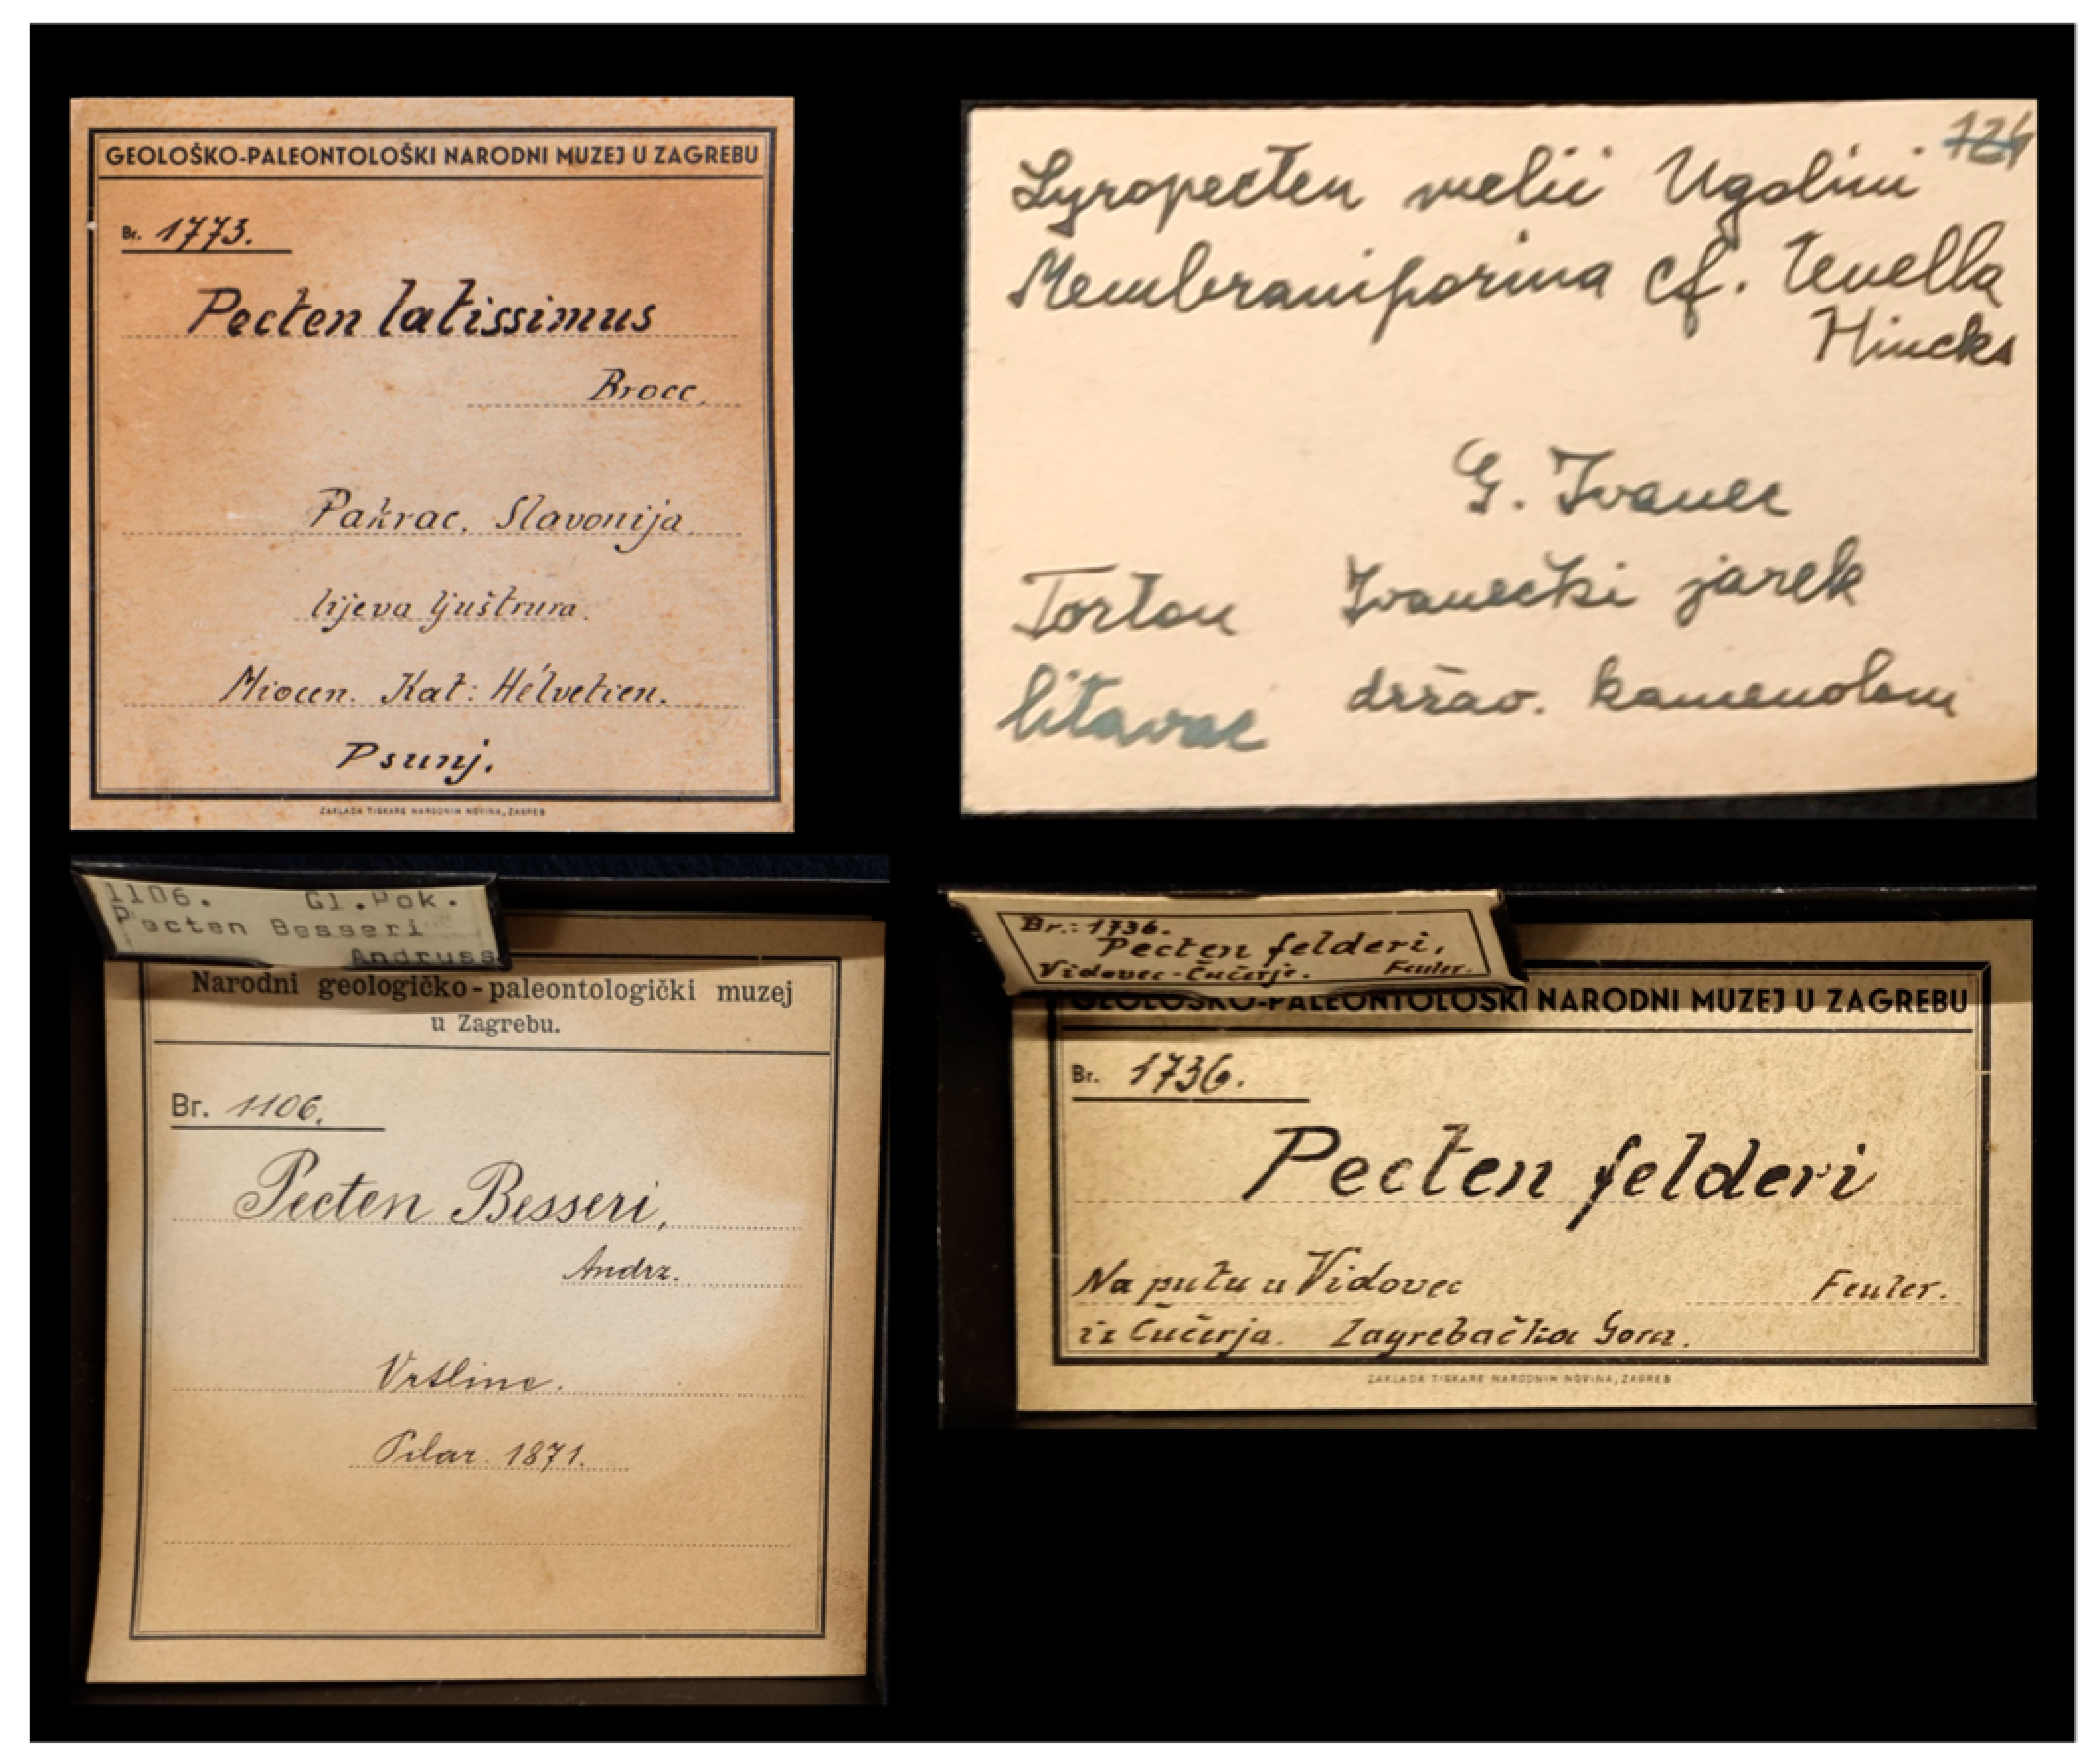 GEOLOŠKO-PALEONTOLOŠKI NARODNI MUZEJ U ZAGREBU
Br. 1773.
Pecten latissimus
Brocc.
Pakrac, Slavonija.
lijeva ljuštura.
Miocen. Kat: Hélvetien.
Psunj.
ZAKLADA TISKARE NARODNIH NOVINA, ZAGREB
Lyropecten melii Ugolini
Membraniporina cf. tenella
Hincks
G. Ivanec
Torton Ivanečki jarek
litavac držav. kamenolom
1106. Gl.Pok.
Pecten Besseri
Andruss
Narodni geologičko-paleontologički muzej
u Zagrebu.
Br. 1106.
Pecten Besseri,
Andrz.
Vrtline.
Pilar 1871.
Br.: 1736.
Pecten felderi,
Vidovec-Čučerje. Feuler.
GEOLOŠKO-PALEONTOLOŠKI NARODNI MUZEJ U ZAGREBU
Br. 1736.
Pecten felderi
Na putu u Vidovec Feuler.
iz Čučerja. Zagrebačka Gora.
ZAKLADA TISKARE NARODNIH NOVINA, ZAGREB